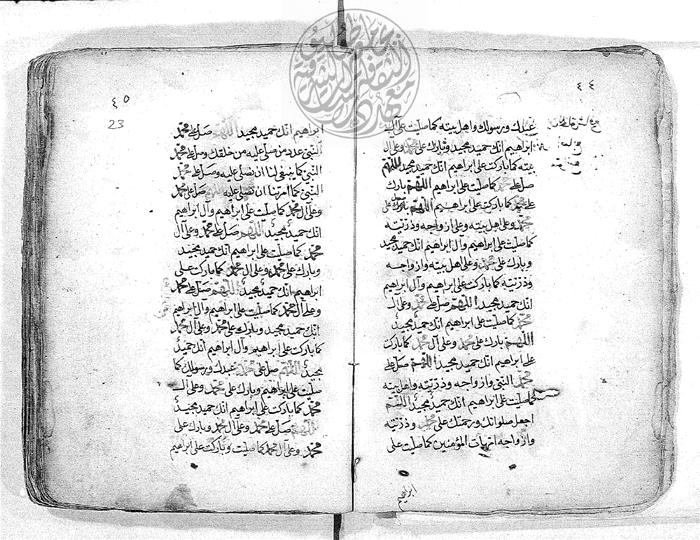 ٤٤
عبدك ورسولك واهل بيته كما صليت على آل
ابراهيم انك حميد مجيد وبارك على محمد وعلى آل
بيته كما باركت على ابراهيم انك حميد مجيد اللهم
صل على محمد كما صليت على ابراهيم اللهم بارك
على محمد كما باركت على ابراهيم اللهم بارك على
محمد وعلى اهل بيته وعلى ازواجه وذريته
كما صليت على ابراهيم وآل ابراهيم انك حميد مجيد
وبارك على محمد وعلى اهل بيته وازواجه
وذريته كما باركت على ابراهيم وآل ابراهيم
انك حميد مجيد اللهم صل على محمد وعلى آل
محمد كما صليت على ابراهيم انك حميد مجيد
اللهم بارك على محمد وعلى آل محمد كما باركت
على ابراهيم انك حميد مجيد اللهم صل على
محمد النبي وازواجه وذريته واهل بيته
كما صليت على ابراهيم انك حميد مجيد اللهم
اجعل صلواتك ورحمتك على محمد وذريته
وازواجه امهات المؤمنين كما صليت على
ابراهيم
٤٥
23
ابراهيم انك حميد مجيد اللهم صل على محمد
النبي عدد من صلى عليه من خلقك وصل على محمد
النبي كما ينبغي لنا ان نصلي عليه وصل على محمد
النبي كما امرتنا ان نصلي عليه اللهم صل على محمد
وعلى آل محمد كما صليت على ابراهيم وآل ابراهيم
انك حميد مجيد اللهم صل على محمد وعلى آل
محمد كما صليت على ابراهيم انك حميد مجيد
وبارك على محمد وعلى آل محمد كما باركت على
ابراهيم انك حميد مجيد اللهم صل على محمد
وعلى آل محمد كما صليت على ابراهيم وآل ابراهيم
انك حميد مجيد وبارك على محمد وعلى آل محمد
كما باركت على ابراهيم وآل ابراهيم انك حميد
مجيد اللهم صل على محمد عبدك ورسولك كما
صليت على ابراهيم وبارك على محمد وعلى آل
محمد كما باركت على ابراهيم انك حميد مجيد
اللهم صل على محمد وعلى آل محمد وبارك على
محمد وعلى آل محمد كما صليت وباركت على ابراهيم